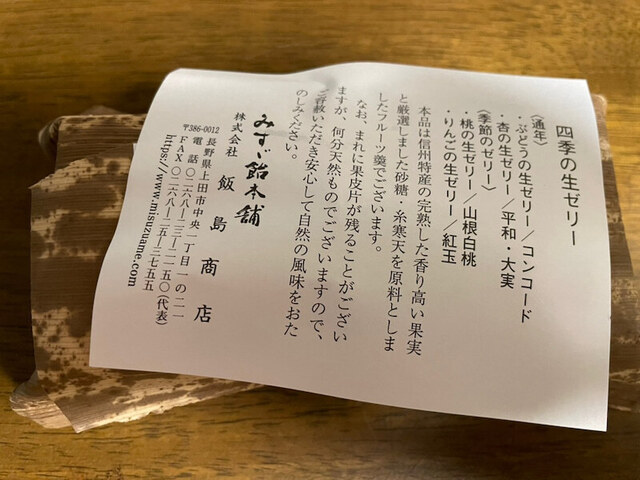 四季の生ゼリー
〈通年〉
・ぶどうの生ゼリー／コンコード
・杏の生ゼリー／平和・大実
〈季節のゼリー〉
・桃の生ゼリー／山根白桃
・りんごの生ゼリー／紅玉
本品は信州特産の完熟した香り高い果実
と厳選しました砂糖・糸寒天を原料としま
したフルーツ羹でございます。
なお、まれに果皮片が残ることがござい
ますが、何分天然ものでございますので、
ご容赦いただき安心して自然の風味をおた
のしみください。
みすゞ飴本舗
株式会社 飯島商店
〒386-0012 長野県上田市中央一丁目一の二一
電話〇二六八ー二三ー二一五〇（代表）
FAX〇二六八ー二五ー三七五五
https://www.misuzuame.com